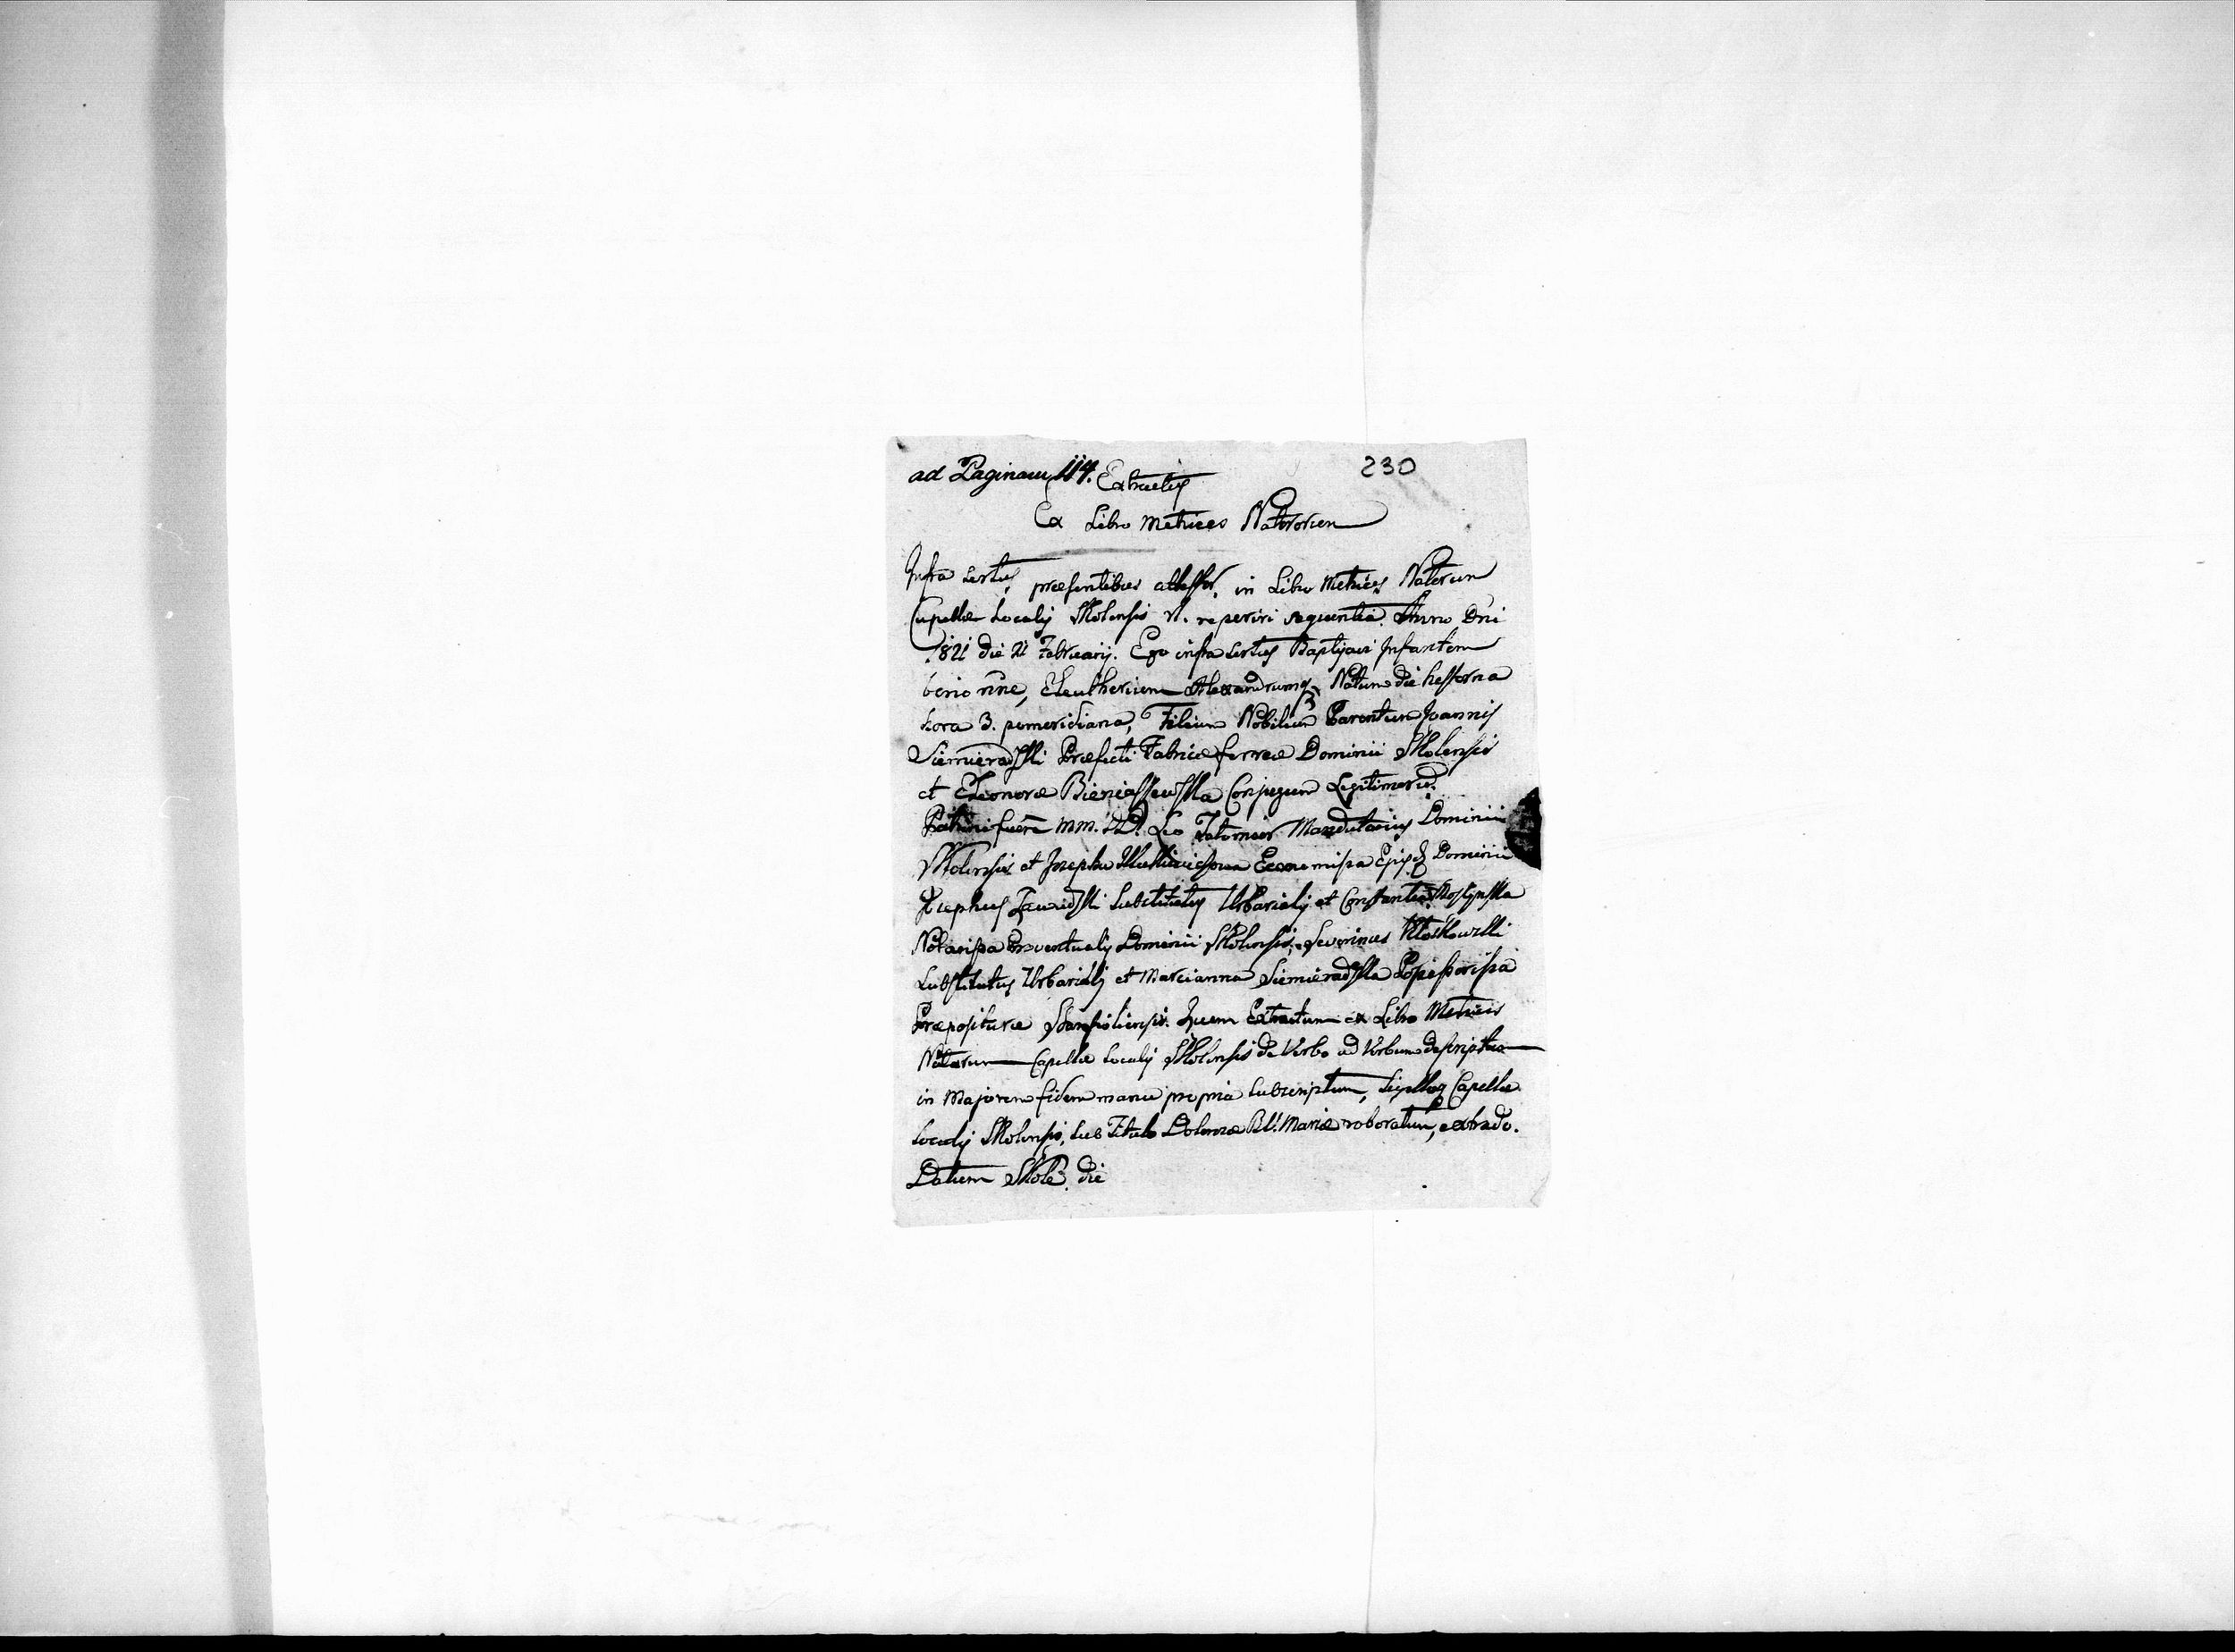 ad Paginam 114. Extractus 230
Ex Libro Metrices Natorum
Infra sertus, praesentibus attestor, in Libro Metrices Natorum
Capellae Localis Skolensis reperiri sequentia. Anno Dni
1821 die 21 Februarij. Ego infra sertus Baptisavi Infantem
binio nne, Eleutherium Alexandrumq Natum die hesterna
hora 3. pomeridiana, Filium Nobilium Parentum Joannis
Siemieradzki Praefecti Fabricae ferreae Dominii Skolensis
et Eleonorae Bieniaszewska Conjugum Legitimorum.
Patrini fuere MM. DD. Leo Mandatarius Dominii
Skolensis et Josepha Economissa Dominii
Josephus Zawidzki Substitutus Urbarialis et Constantia
Notarissa Proventualis Dominii Skolensis, Severinus
Substitutus Urbarialis et Marcianna Siemieradzka Possessorissa
Praepositurae Quem Extractum ex Libro Metrices
Natorum Capellae Localis Skolensis de Verbo ad Verbum descriptum
in Majorem fidem manu propria subscriptum, Sigilloq Capellae
Localis Skolensis, sub Titulo Dolorosae B.V. Mariae roboratum, extrado.
Datum Skole die